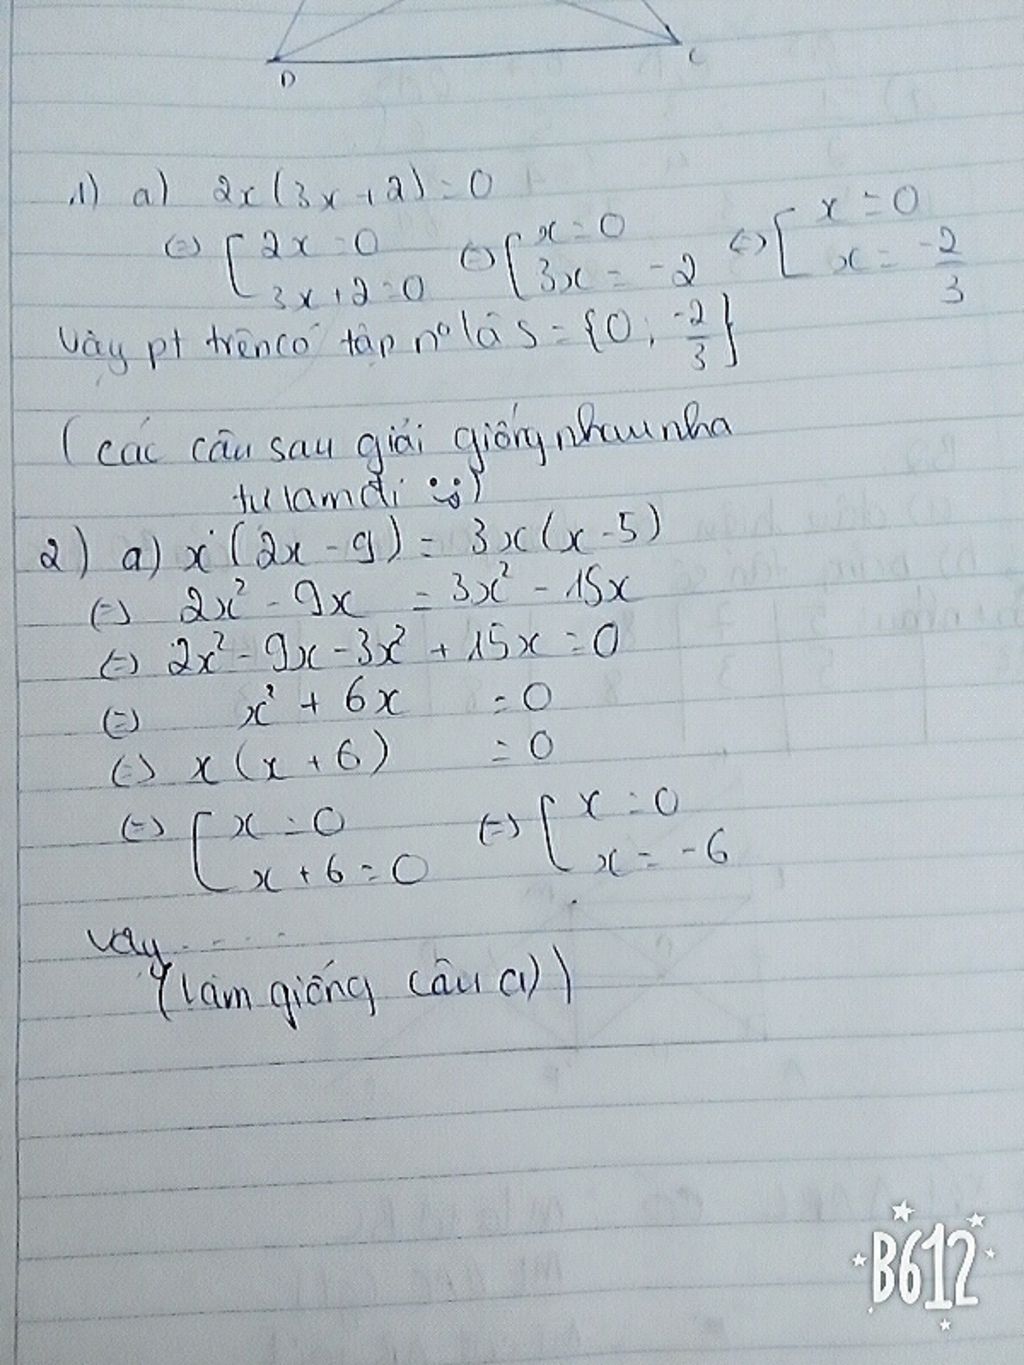 D
C
1) a) 2x(3x+2)=0
(=) [ 2x=0 (=) [ x=0 (=) [ x=0
3x+2=0 3x=-2 x=-2/3
Vậy pt trên có tập nº là S={0; -2/3}
(các câu sau giải giống nhau nha
tự làm đi :))
2) a) x(2x-9)=3x(x-5)
(=) 2x²-9x =3x²-15x
(=) 2x²-9x-3x²+15x=0
(=) x²+6x =0
(=) x(x+6) =0
(=) [ x=0 (=) [ x=0
x+6=0 x=-6
vậy.....
(làm giống câu a))
B612